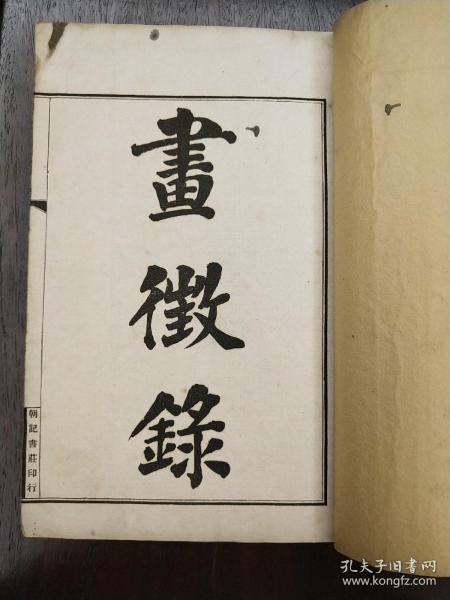 畫徵錄
朝記書莊印行
孔夫子旧书网
www.kongfz.com